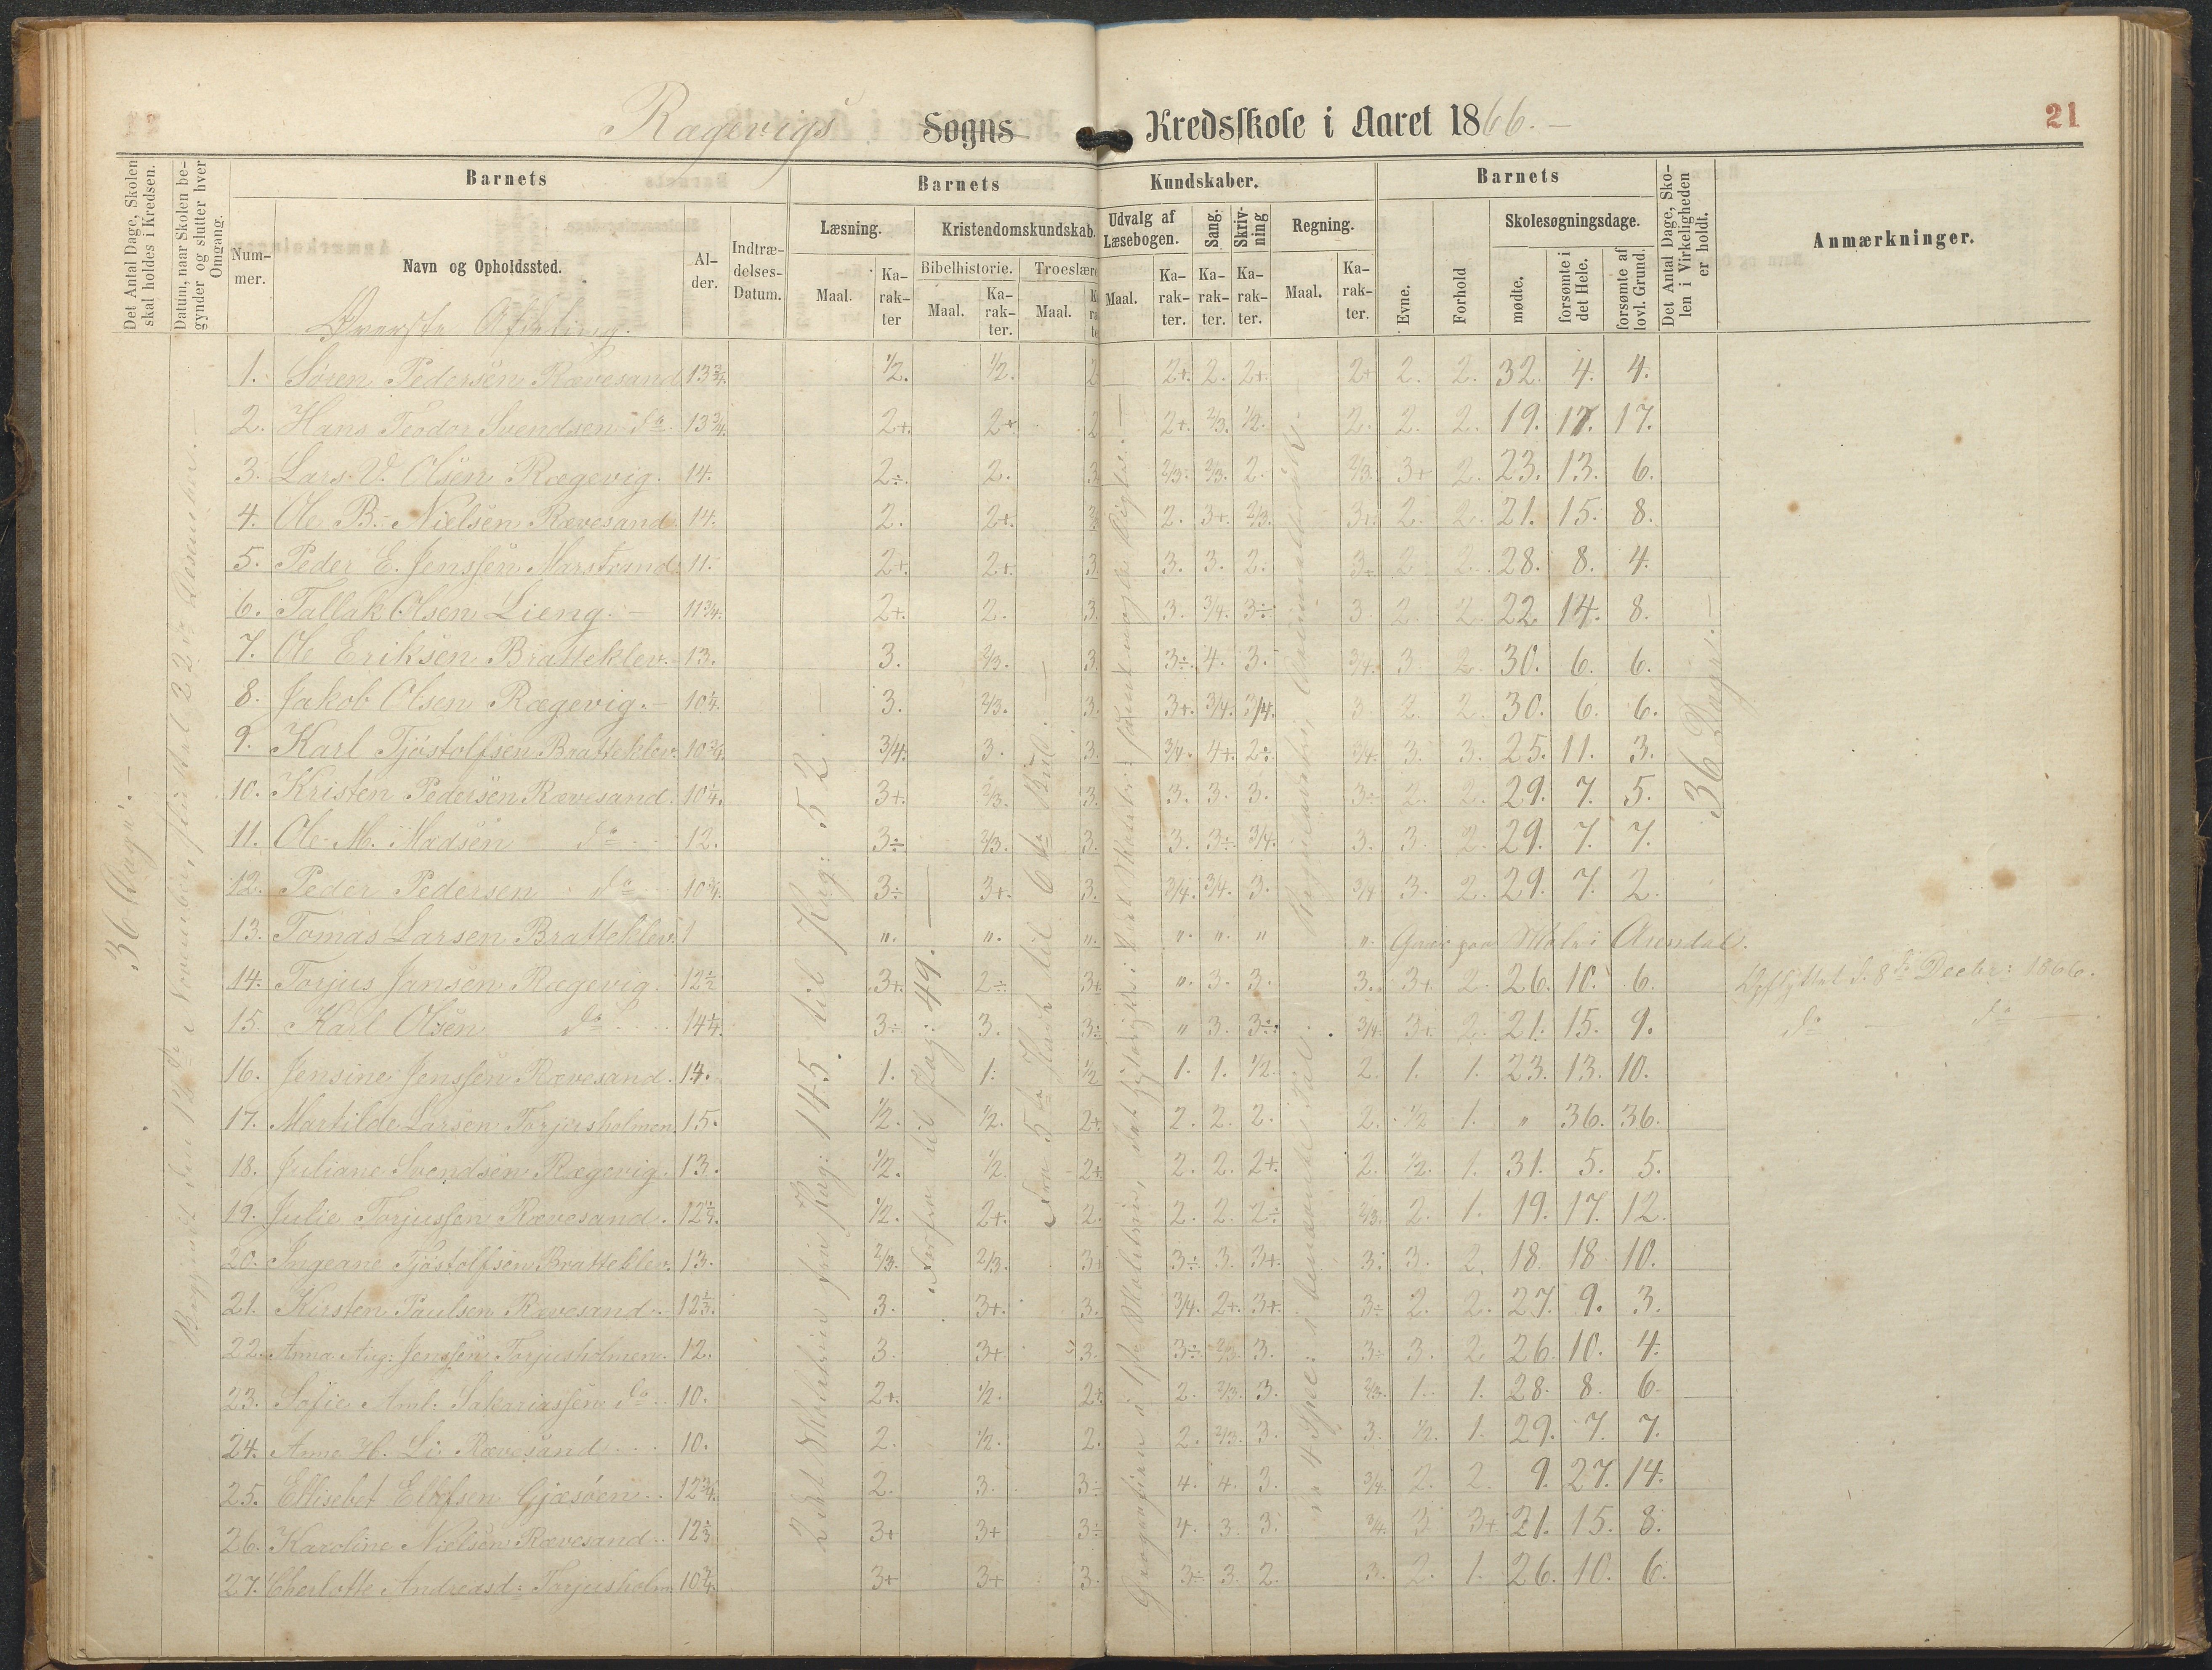 Rægevigs Sogns Kredsskole i Aaret 1866. 21
Det Antal Dage, Skolen skal holdes i Kredsen.
Datum, naar Skolen begynder og slutter hver Omgang.
Barnets
Barnets Kundskaber.
Barnets
Det Antal Dage, Skolen i Virkeligheden er holdt.
Anmærkninger.
Nummer.
Navn og Opholdssted.
Alder.
Indtrædelses-Datum.
Læsning.
Kristendomskundskab.
Udvalg af Læsebogen.
Sang.
Skrivning
Regning.
Evne.
Forhold
Skolesøgningsdage.
Bibelhistorie.
Troeslære
Maal. Karakter Maal. Karakter. Maal. Maal. Karakter. Karakter. Karakter. Maal. Karakter.
mødte. forsømte i det Hele. forsømte af lovl. Grund.
Øverste Afdeling.
36 Dage.
36 Dage.
1. Søren Pedersen Rævesand 13 3/4. 1/2. 1/2. 2 2+. 2. 2+. 2+ 2. 2. 32. 4. 4.
2. Hans Teodor Svendsen do. 13 3/4. 2+. 2+. 2 2+. 2/3. 1/2. 2. 2. 2. 19. 17. 17.
3. Lars V. Olsen Rægevig. 14. 2÷. 2. 3 2/3. 2/3. 2. 2/3. 3+ 2. 23. 13. 6.
4. Ole B. Nielsen Rævesand 14. 2. 2+. 2. 3+. 2/3. 3+. 2. 2. 21. 15. 8.
5. Peder E. Jenssen Marstrand. 11. 2+. 2+. 3 3. 3. 2. 3+ 2 2. 28. 8. 4.
6. Tallak Olsen Lieng. 11 3/4. 2+. 2. 3. 3. 3/4. 3÷ 3. 2. 2. 22 14. 8.
7. Ole Eriksen Bratteklev. 13. 3. 2/3. 3. 3÷. 4. 3. 3/4. 3 2. 30. 6. 6.
8. Jakob Olsen Rægevig. 10 1/4. 3. 2/3. 3. 3+. 3/4. 3/4. 3. 2. 2. 30. 6. 6.
9. Karl Tjøstolfsen Bratteklev. 10 3/4. 3/4. 3. 3. 3/4. 4+. 2÷ 3/4. 3. 3. 25. 11. 3.
10. Kristen Pedersen Rævesand. 10 1/4. 3+. 2/3. 3. 3. 3. 3. 3÷ 2. 2. 29. 7. 5.
11. Ole M. Madsen do 12. 3÷ 2/3. 3. 3. 3÷. 3/4. 3. 3. 2. 29. 7. 7.
12. Peder Pedersen do 10 3/4. 3÷ 3+. 3. 3/4. 3/4. 3. 3/4 3. 2. 29. 7. 2.
13. Tomas Larsen Bratteklev. " " " " " " " Gaar paa Skole i Arendal.
14. Torjus Jansen Rægevig. 12 1/2 3+. 2÷ 3+ " 3. 3. 3. 3+. 2. 26. 10. 6. Udflyttet d. 8de Decbr: 1866.
15. Karl Olsen do 14 1/4. 3÷ 3. 3÷ " 3. 3÷. 3/4. 3+. 2. 21. 15. 9. do — do —
16. Jensine Jenssen Rævesand. 14. 1. 1. 1/2 1. 1. 1/2. 2. 1. 1. 23. 13. 10.
17. Martilde Larsen Torjusholmen. 15. 1/2. 1/2. 2+. 2. 2. 2. 2. 1/2 1. " 36. 36.
18. Juliane Svendsen Rægevig. 13. 1/2. 1/2. 2+. 2. 2. 2+. 2. 1/2. 1. 31. 5. 5.
19. Julie Torjussen Rævesand. 12 1/4. 1/2. 2+. 2. 2. 2. 2÷ 2/3. 2. 1. 19. 17. 12.
20. Ingeane Tjøstolfsen Bratteklev. 13. 2/3. 2/3. 3+ 3÷ 3. 3+. 3. 3. 2. 18. 18. 10.
21. Kirsten Paulsen Rævesand. 12 1/3. 3. 3+. 3. 3/4. 2+. 3+. 3÷ 2. 2. 27. 9. 3.
22. Anna Aug: Jenssen Torjusholmen. 12. 3. 3+. 3. 3÷ 2/3. 3. 3÷ 3. 2. 26. 10. 4.
23. Sofie Aml: Sakariassen do. 10. 2+. 1/2. 2+ 2. 2/3. 3. 2/3. 1. 1. 28. 8. 6.
24. Anne H. Li Rævesand 10. 2. 1/2. 2. 2. 2/3. 3. 3. 1/2. 1. 29. 7. 7.
25. Ellisebet Ellefsen Gjæsøen 12 3/4. 2. 3. 3÷ 4. 4. 3. 3/4. 2. 2. 9. 27. 14.
26. Karoline Nielsen Rævesand. 12 1/3 3+ 3+ 3÷ 4. 3. 3. 3/4. 3 3+. 21. 15. 8.
27. Cherlotte Andreasd: Torjusholm 10 3/4. 3+ 3+ 3. 3÷ 3. 2. 3. 2. 1. 26. 10. 6.